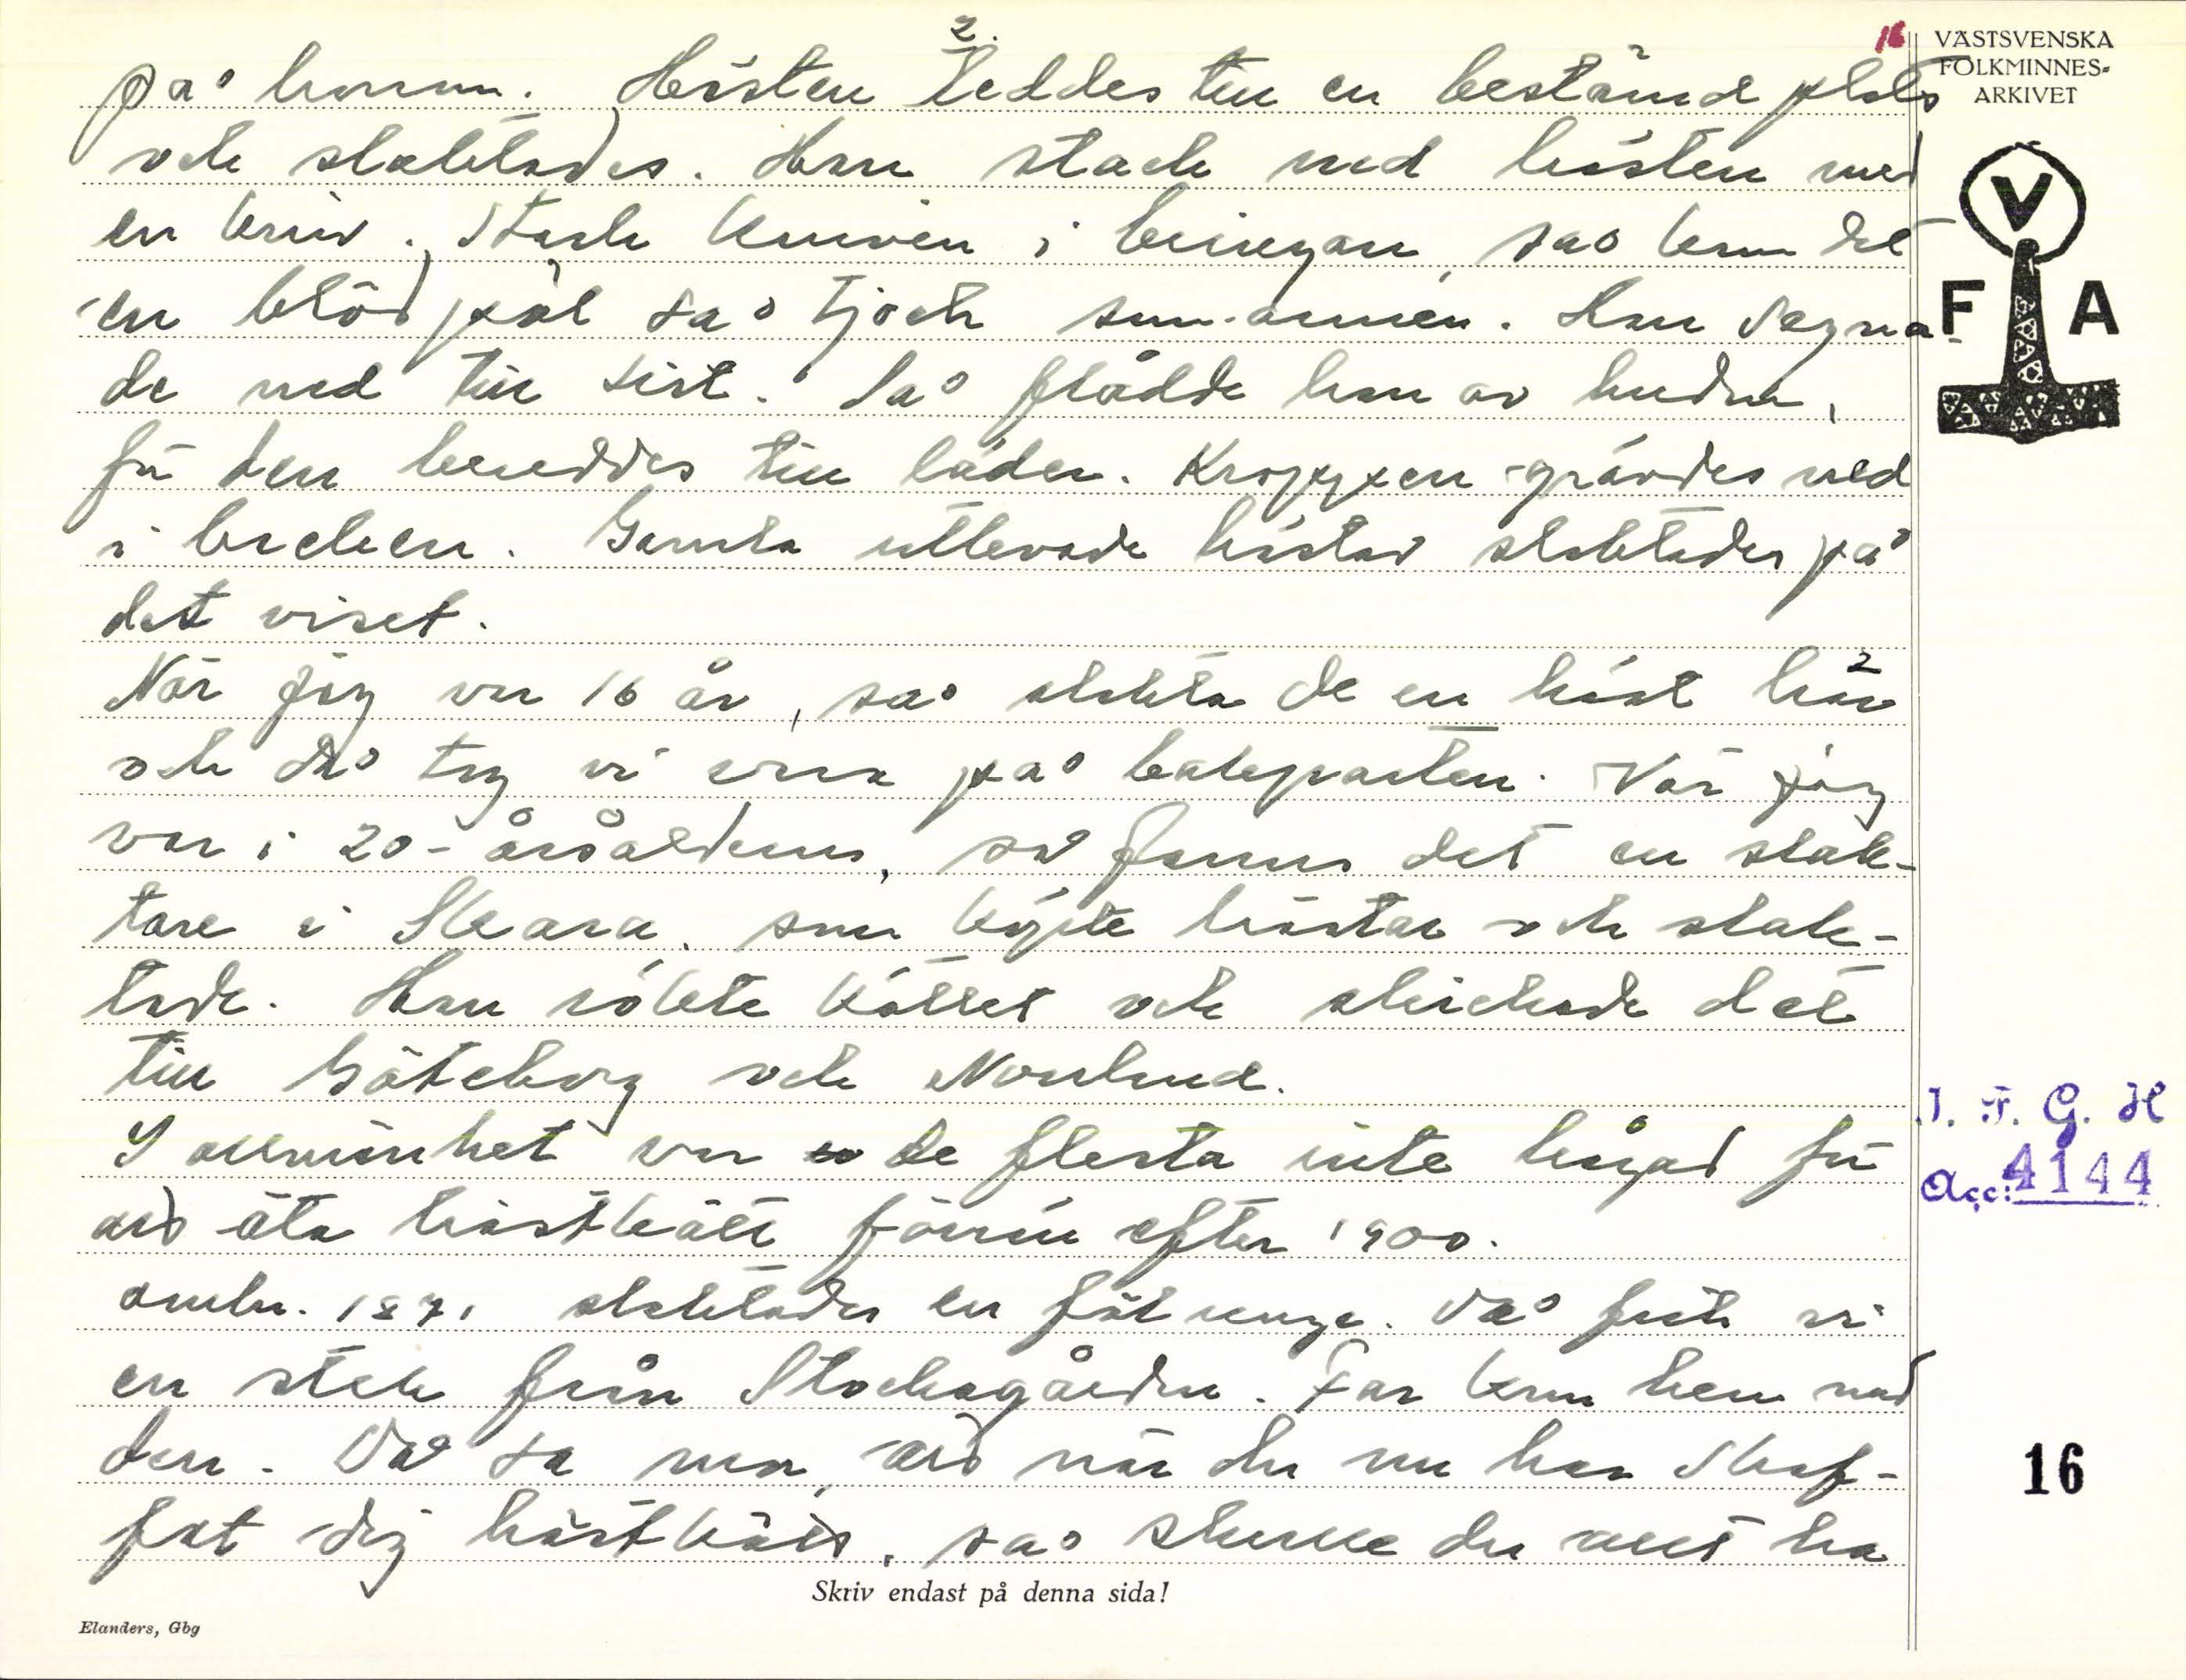 2.
16
VÄSTSVENSKA
FOLKMINNES-
ARKIVET
V
F A
på honom. Hästen leddes till en bestämd plats
och slaktades. Han stack ned hästen med
en kniv. Stack kniven i bringan, så kom det
en blodpöl så tjock som armen. Han segna
de ned till sist. Så flådde han av huden,
för den bereddes till läder. Kroppen grävdes ned
i backen. Gamla utlevade hästar slaktades på
det viset.
När jag var 16 år, så slakta de en häst här
och då tog vi oss på bakparten. När jag
var i 20-årsåldern, så fanns det en slak-
tare i Skara, som köpte hästar och slak-
tade. Han rökte köttet och skickade det
till Göteborg och Norrland.
I allmänhet var de flesta inte hågad för
att äta hästkött förrän efter 1900.
omkr. 1871 slaktades en fölunge. Då fick vi
en stek från Stockagården. Far kom hem med
den. Då sa mor, att när du nu har skaf-
fat dig hästkött, så skulle du allt ha
I. F. G. H
Acc: 4144
16
Skriv endast på denna sida!
Elanders, Gbg